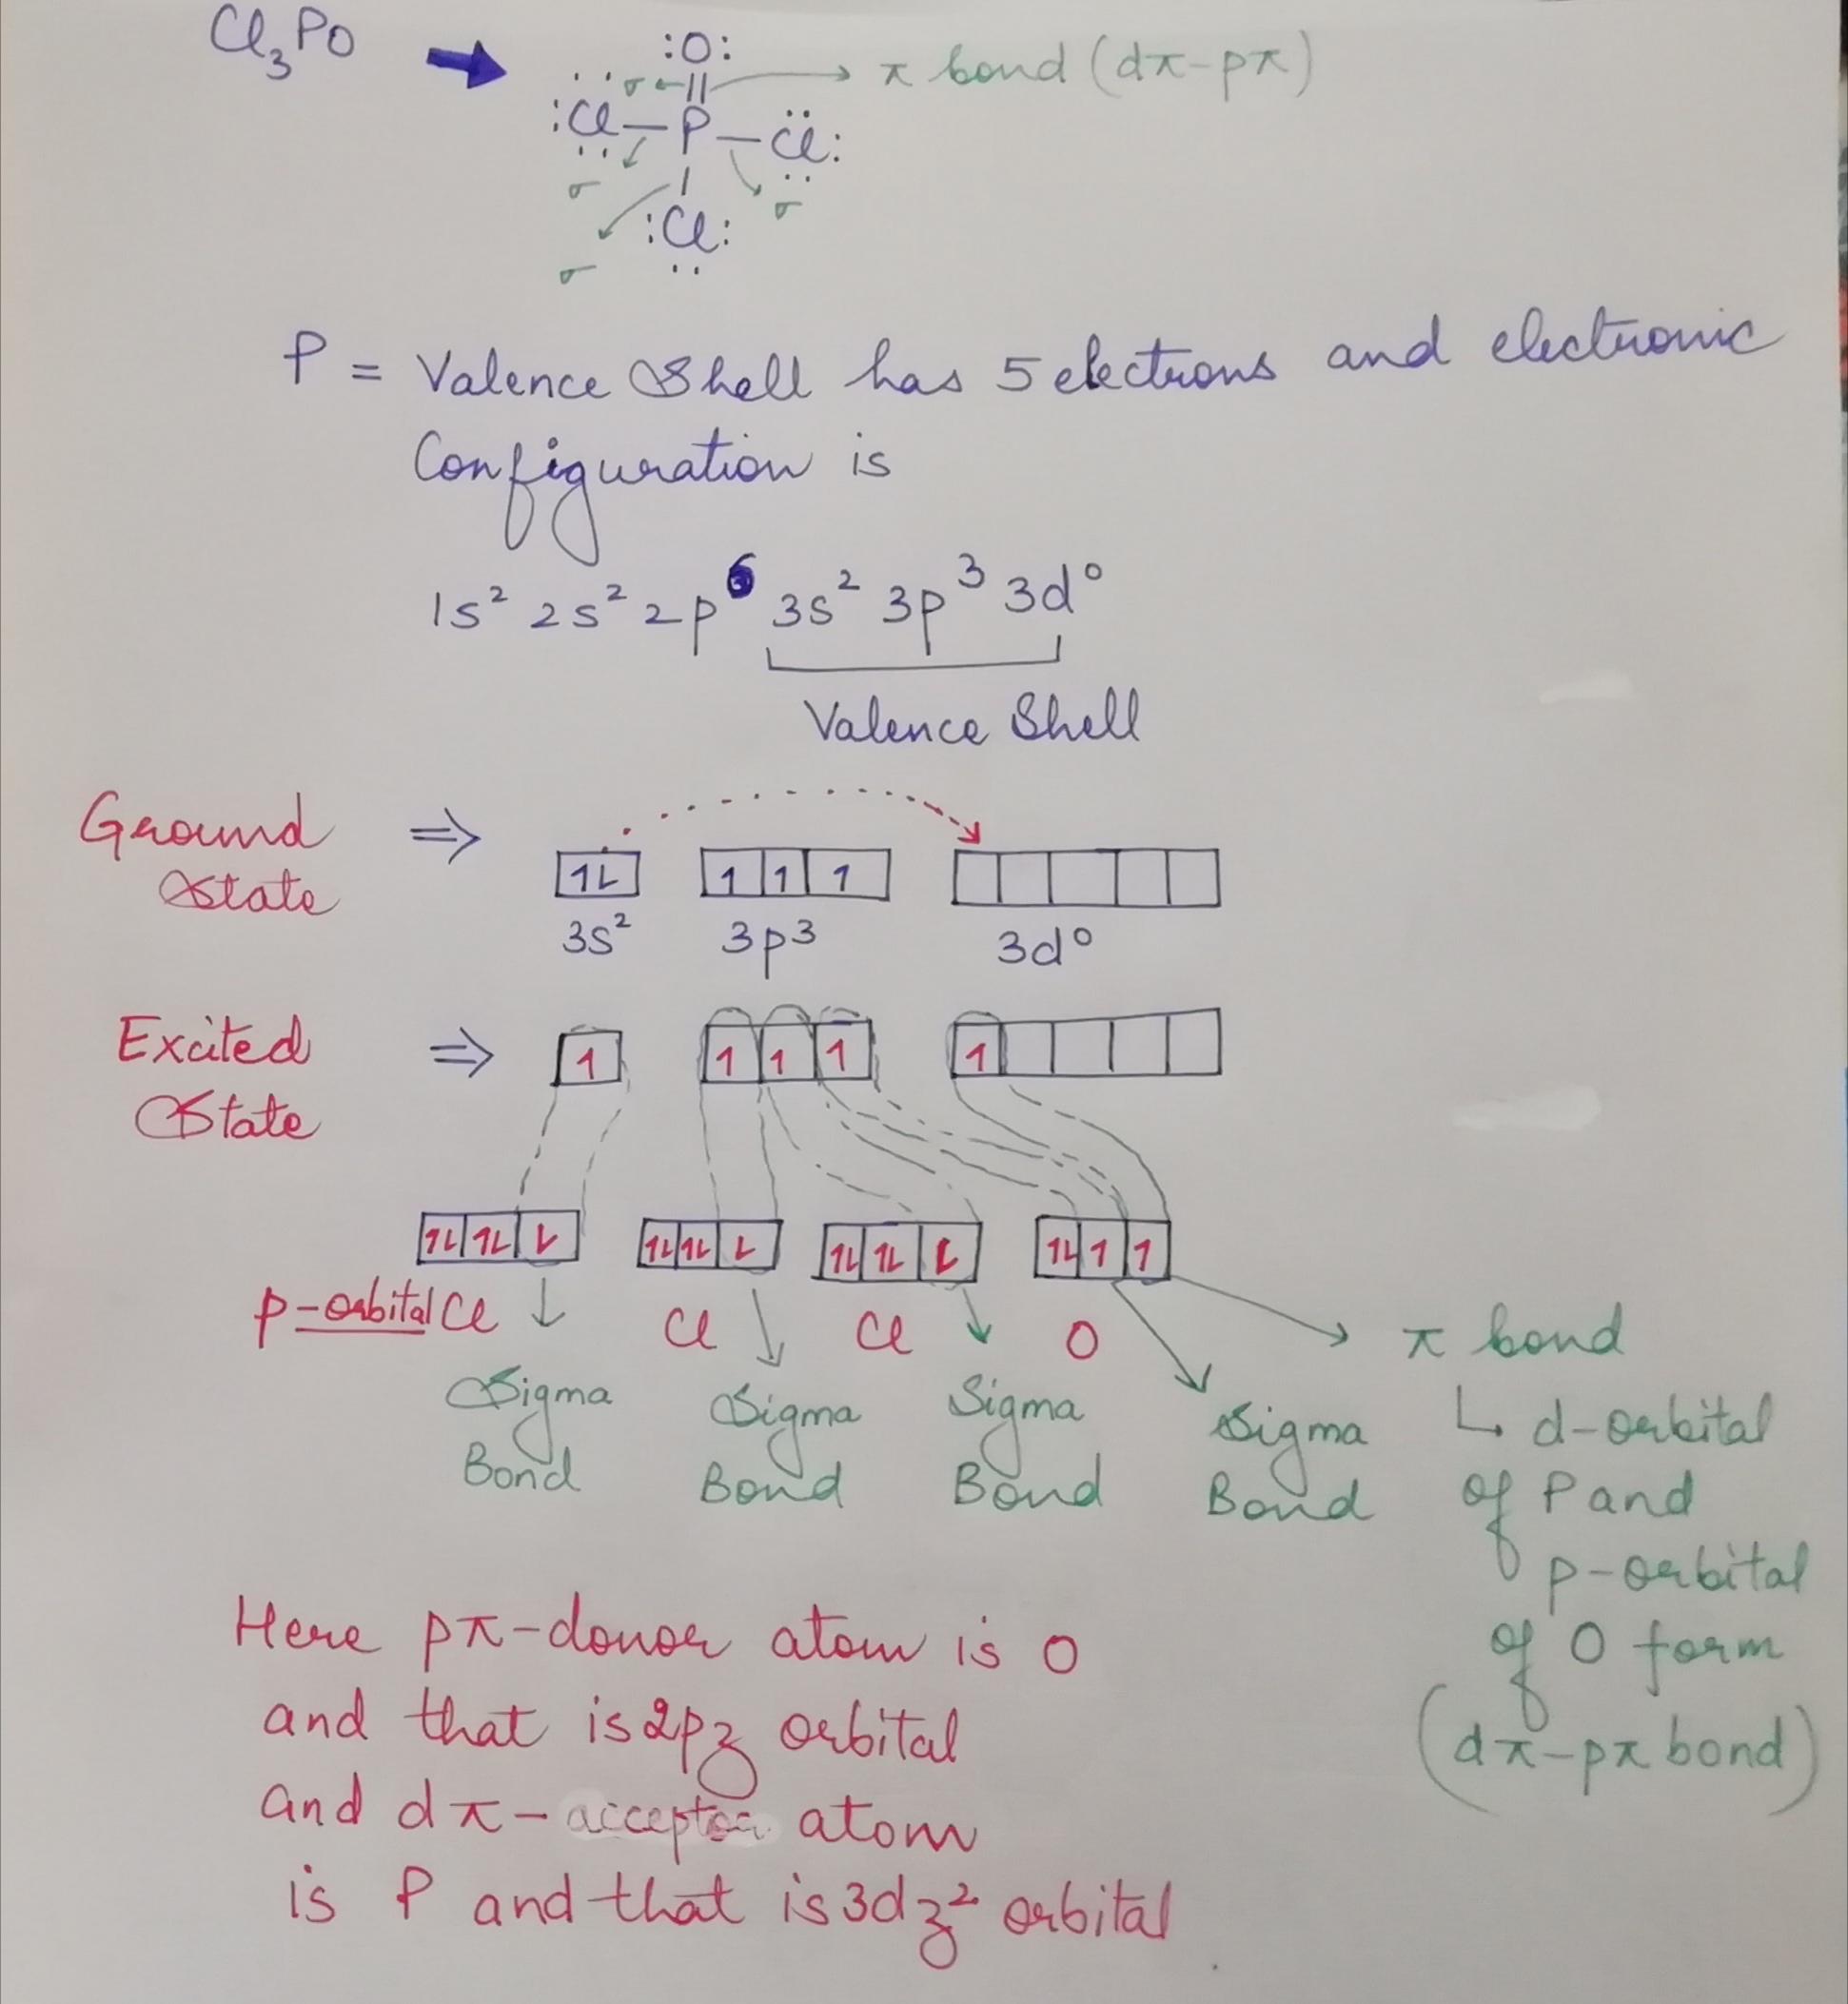 Cl₃PO
:O:
σ ← || → π bond (dπ-pπ)
:Cl — P — Cl:
σ
σ
:Cl:
σ
P = Valence Shell has 5 electrons and electronic
Configuration is
1s² 2s² 2p⁶ 3s² 3p³ 3d⁰
Valence Shell
Ground State ⇒
1L 1 1 1
3s² 3p³ 3d⁰
Excited State ⇒
1 1 1 1 1
1L 1L L 1L 1L L 1L 1L L 1L 1 1
p-orbital Cl Cl Cl O
Sigma Bond
Sigma Bond
Sigma Bond
Sigma Bond
π bond
↳ d-orbital
of P and
p-orbital
of O form
(dπ-pπ bond)
Here pπ-donor atom is O
and that is 2pz orbital
and dπ-acceptor atom
is P and that is 3dz² orbital